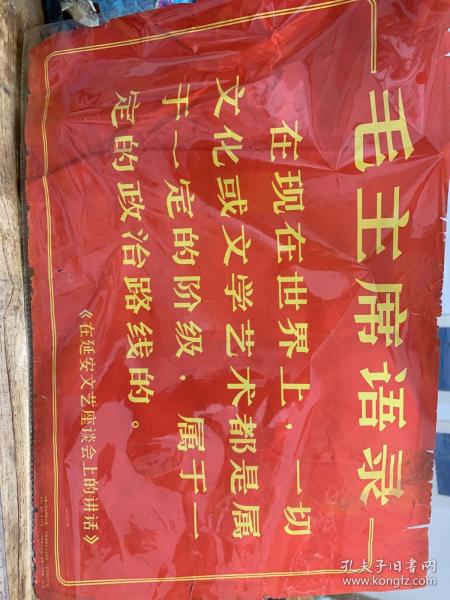 毛主席语录
在现在世界上，一切
文化或文学艺术都是属
于一定的阶级，属于一
定的政治路线的。
《在延安文艺座谈会上的讲话》
孔夫子旧书网
www.kongfz.com